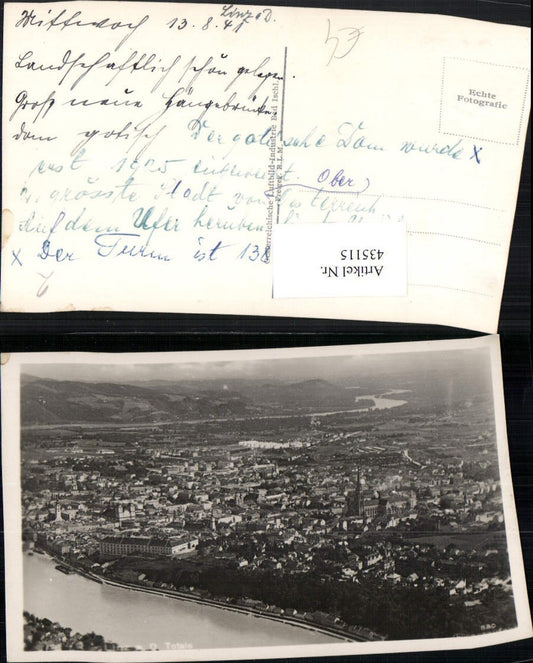 Linz a. D.
Mittwoch 13.8.41
Landschaftlich schön gelegen.
Groß neue Hängebrücke
dom gotisch Der gotische Dom wurde x
erst 1925 entweiht.
(Ober)
grösste Stadt von Österreich
Auf dem Ufer herüben
x Der Turm ist 13
Echte
Fotografie
Österreichische Luftbild-Industrie Bad Ischl
Artikel Nr.
435115
D. Totale